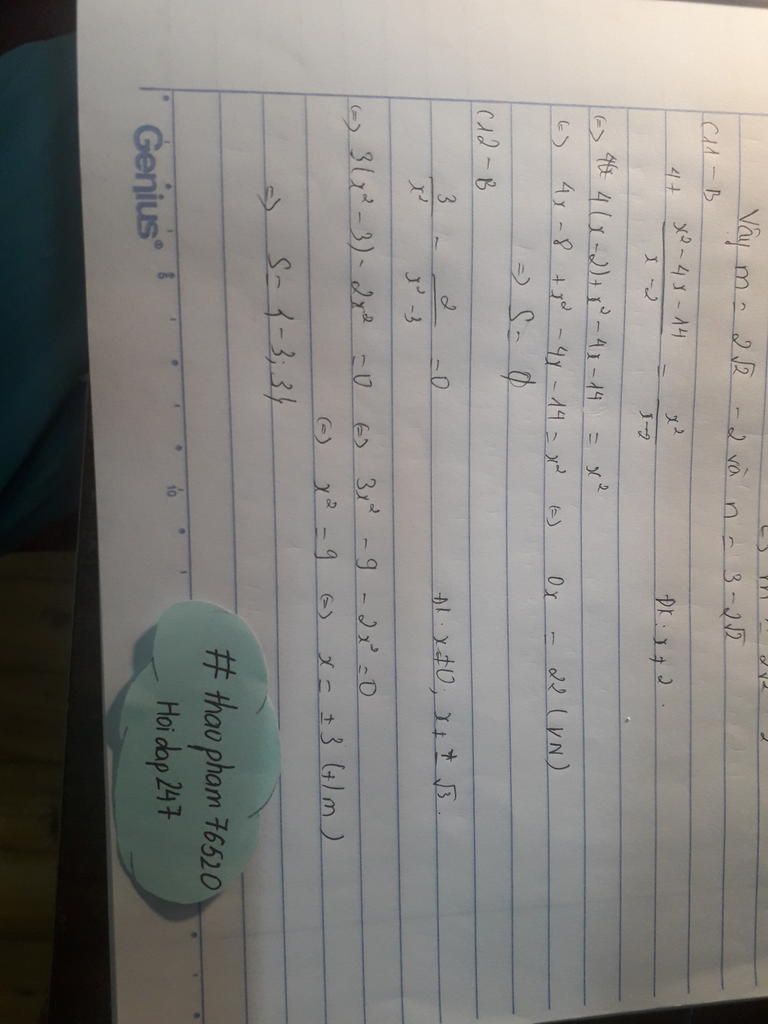 Vậy m = 2√2 - 2 và n = 3 - 2√2
C11 - B
4 + (x² - 4x - 14)/(x - 2) = x²/(x-2) ĐK: x ≠ 2.
(=) 4(x-2) + x² - 4x - 14 = x²
(=) 4x - 8 + x² - 4x - 14 = x² (=) 0x = 22 (VN)
=) S = ∅
C12 - B
3/x² - 2/(x² - 3) = 0 ĐK: x ≠ 0; x ≠ ± √3.
(=) 3(x² - 3) - 2x² = 0 (=) 3x² - 9 - 2x² = 0
(=) x² = 9 (=) x = ± 3 (t/m)
=) S = {-3; 3}
Genius
8
10
# thaopham76520
Hoidap247